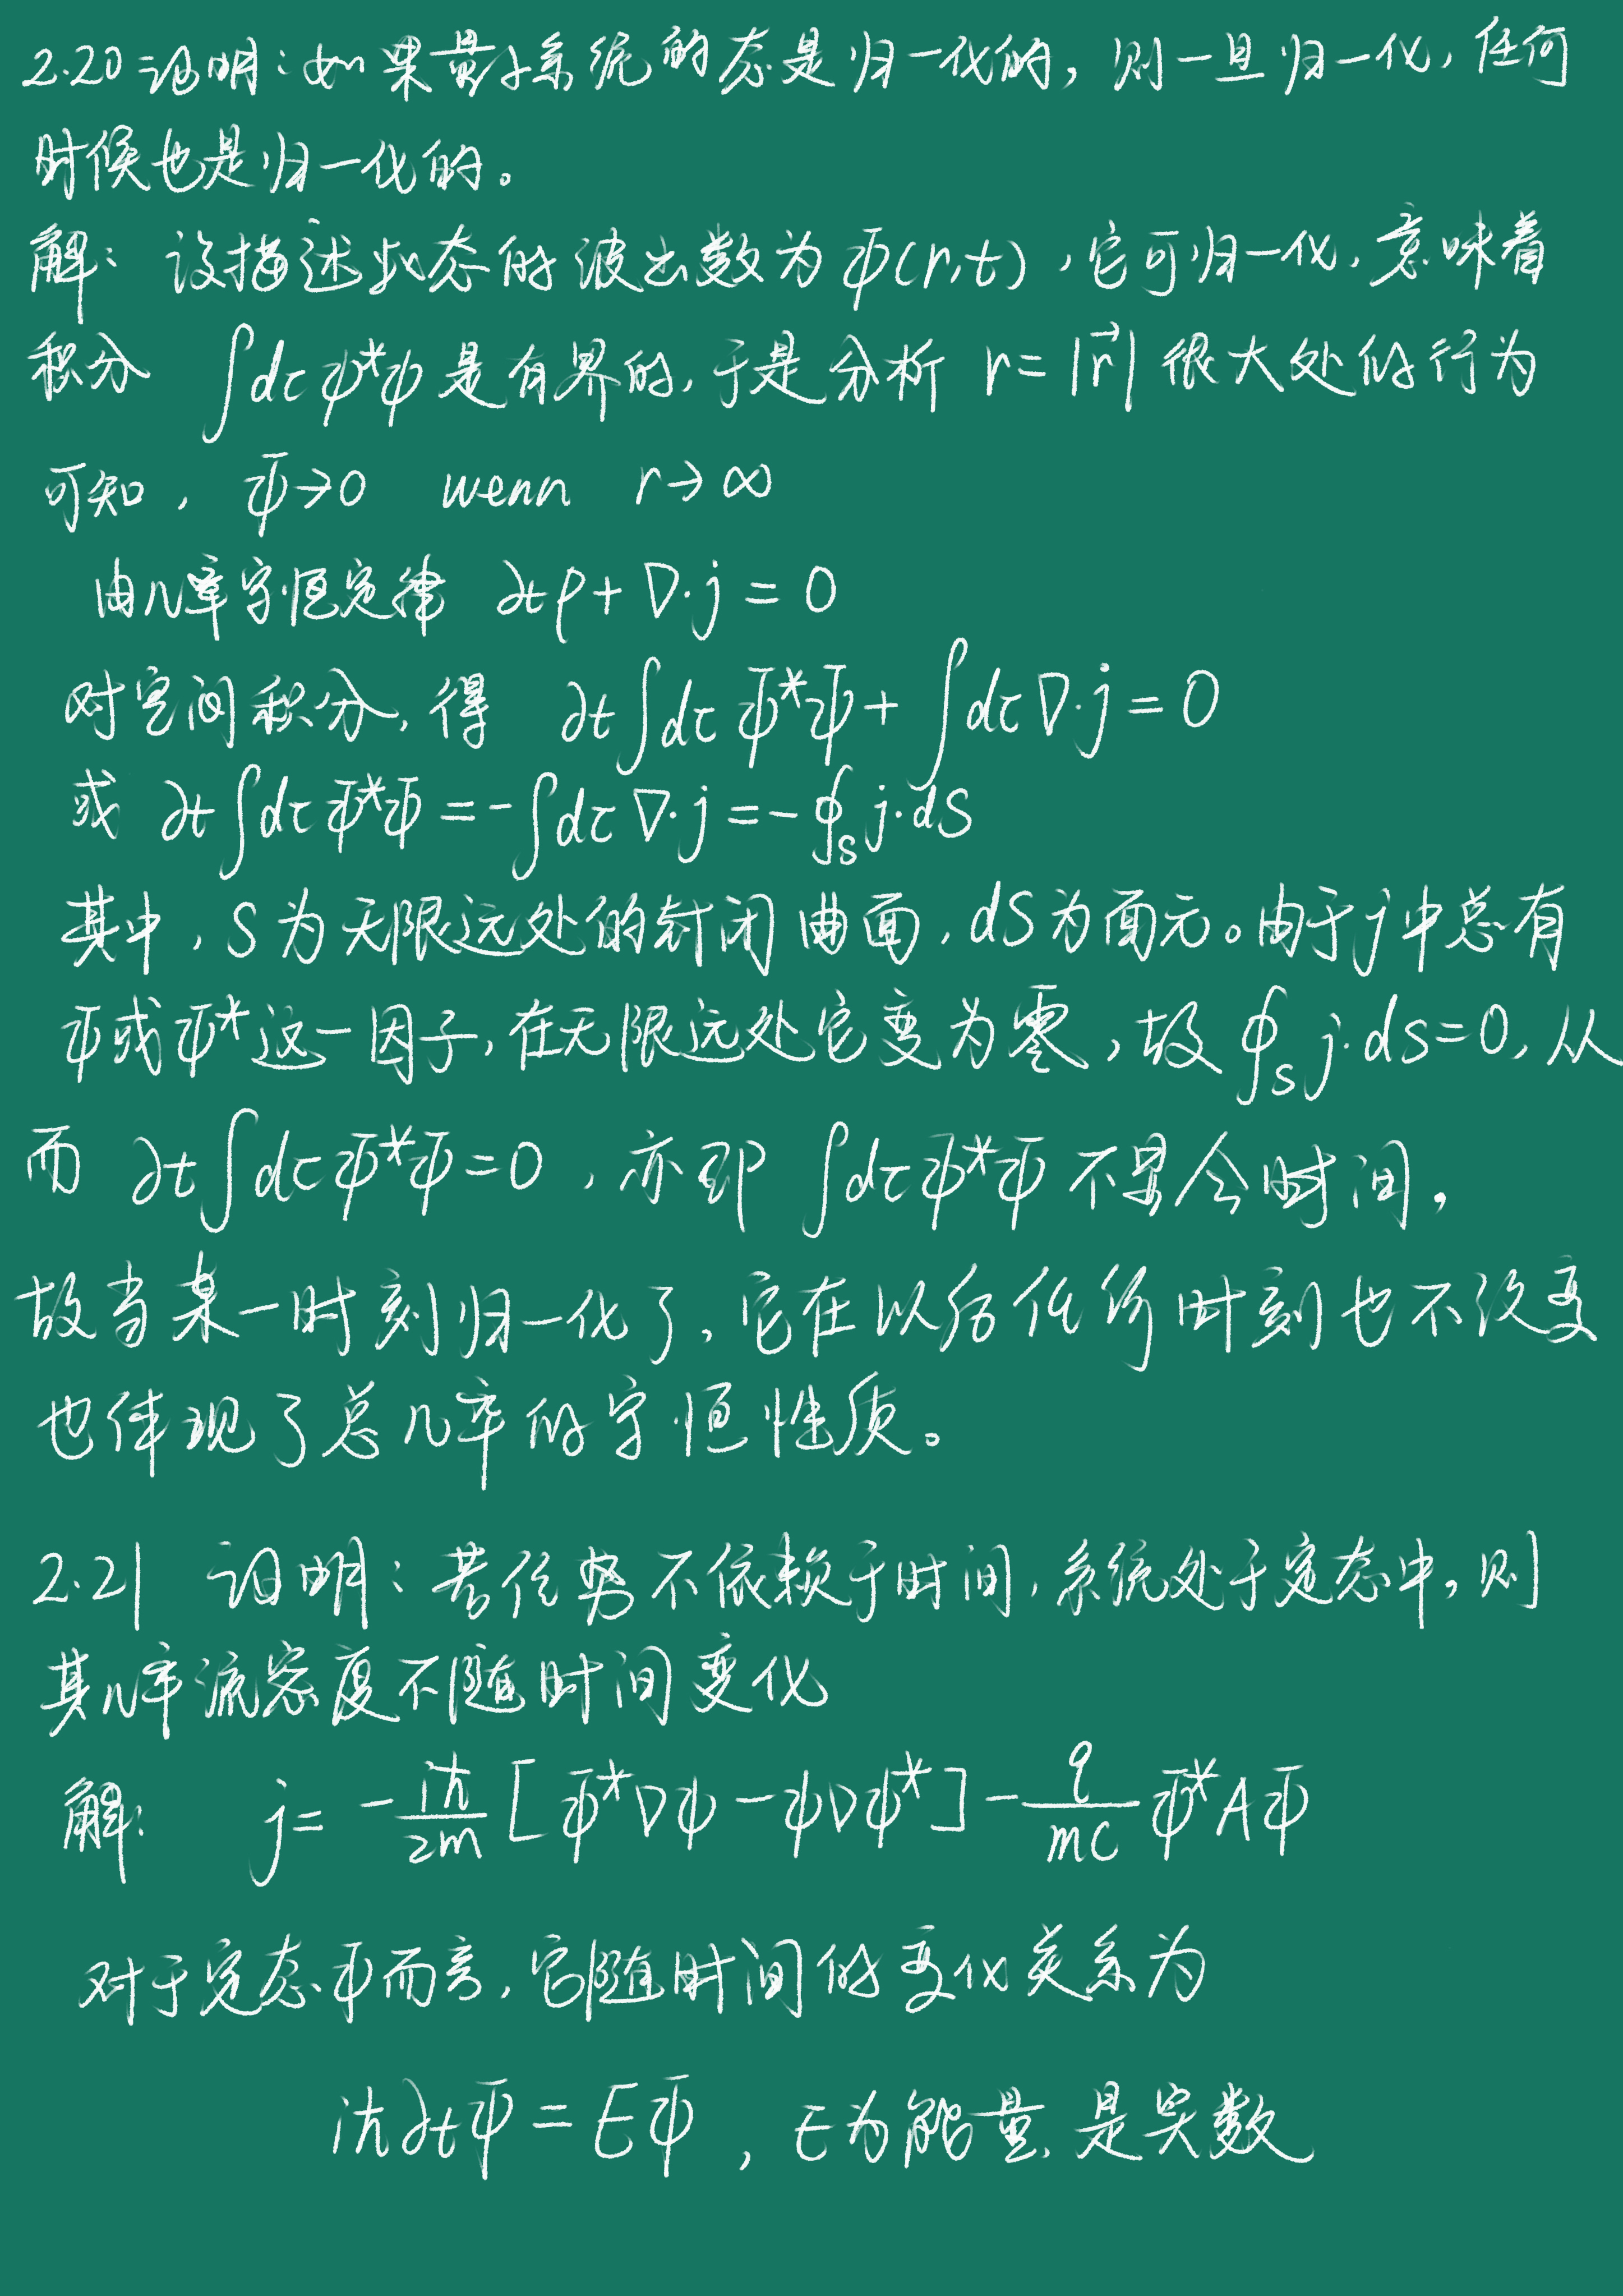 2.20 证明：如果量子系统的态是归一化的，则一旦归一化，任何
时候也是归一化的。
解：设描述此态的波函数为 Ψ(r,t)，它可归一化，意味着
积分 ∫dτ ψ*ψ 是有界的，于是分析 r=|r⃗| 很大处的行为
可知，Ψ→0 wenn r→∞
由几率守恒定律 ∂tρ+∇·j=0
对空间积分，得 ∂t∫dτ Ψ*Ψ+∫dτ∇·j=0
或 ∂t∫dτ Ψ*Ψ=-∫dτ ∇·j=-∮s j·dS
其中，S为无限远处的封闭曲面，dS为面元。由于j中总有
Ψ或Ψ*这一因子，在无限远处它变为零，故 ∮s j·ds=0，从
而 ∂t∫dτ Ψ*Ψ=0，亦即 ∫dτ Ψ*Ψ 不显含时间，
故当某一时刻归一化了，它在以后任何时刻也不改变
也体现了总几率的守恒性质。
2.21 证明：若位势不依赖于时间，系统处于定态中，则
其几率流密度不随时间变化
解： j= -iħ/2m [Ψ*∇ψ-ψ∇ψ*]-q/mc Ψ*AΨ
对于定态Ψ而言，它随时间的变化关系为
iħ∂tΨ=EΨ，E为能量，是实数